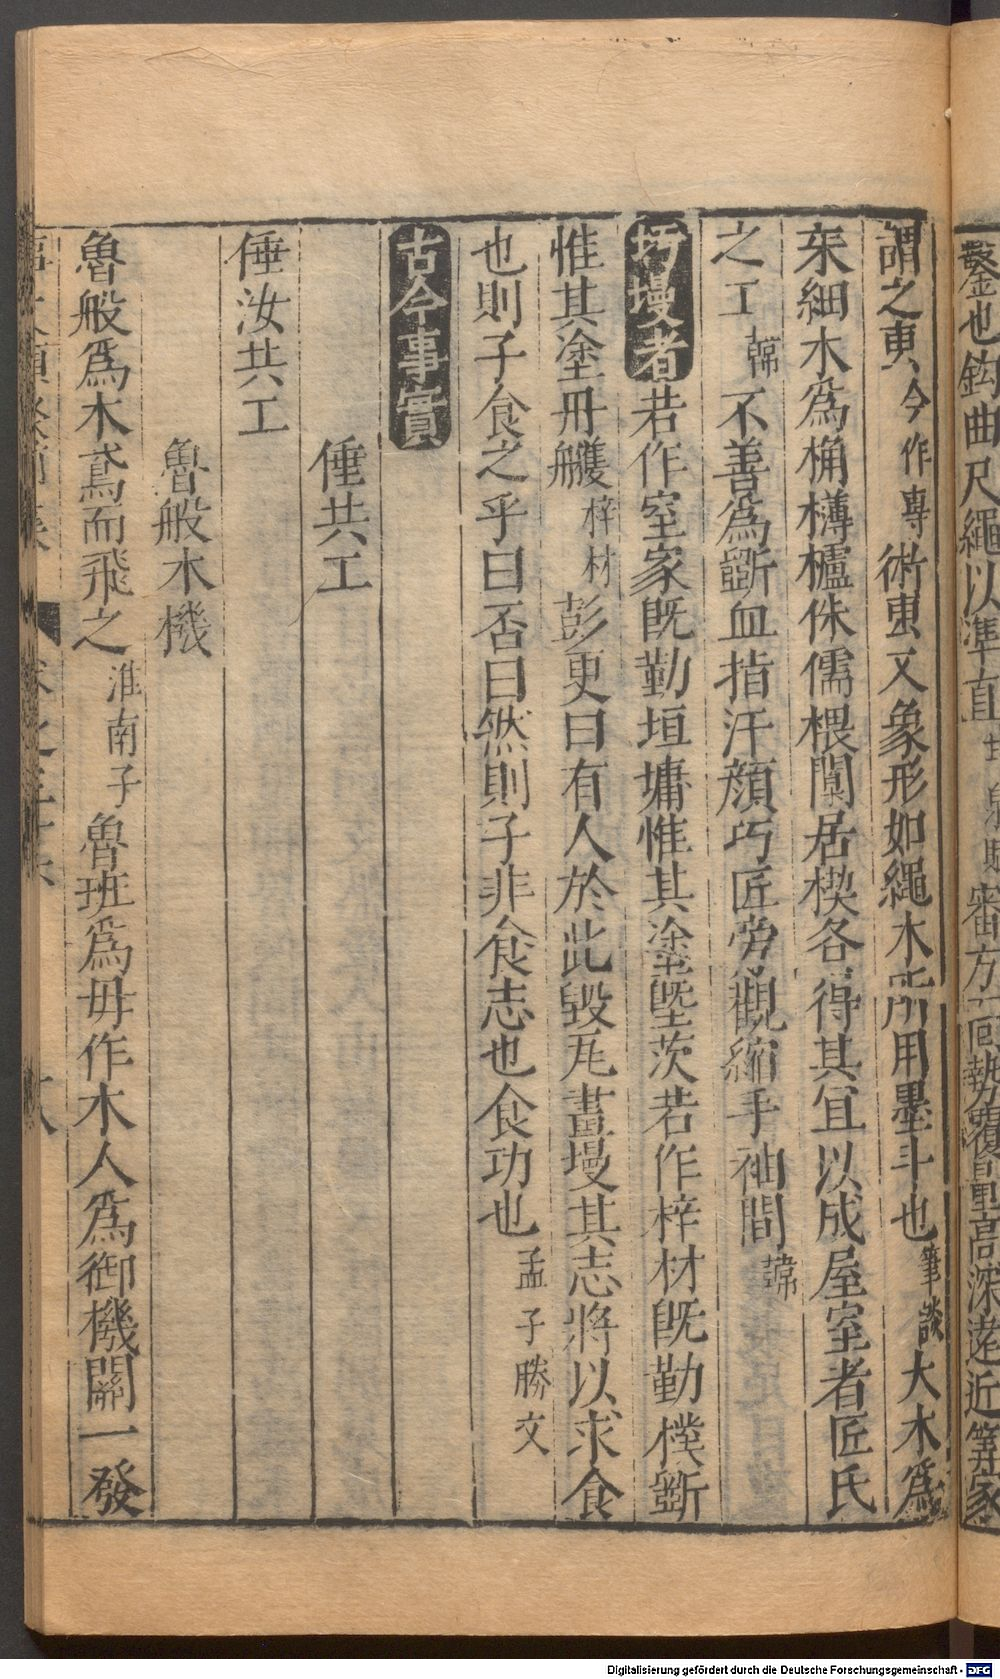 鑿也鈎曲尺繩以準直
審方面勢覆量高深遠近筭家
謂之叀今作專術叀又象形如繩木所用墨斗也筆談大木為
杗細木為桷欂櫨侏儒椳闑扂楔各得其宜以成屋室者匠氏
之工韓不善為斲血指汗顏巧匠旁觀縮手袖間韓
圬墁者若作室家旣勤垣墉惟其塗塈茨若作梓材旣勤樸斲
惟其塗丹雘梓材彭更曰有人於此毀瓦畫墁其志將以求食
也則子食之乎曰否曰然則子非食志也食功也孟子滕文
古今事實
倕共工
倕汝共工
魯般木機
魯般爲木鳶而飛之淮南子魯班爲母作木人爲御機關一發
Digitalisierung gefördert durch die Deutsche Forschungsgemeinschaft - DFG